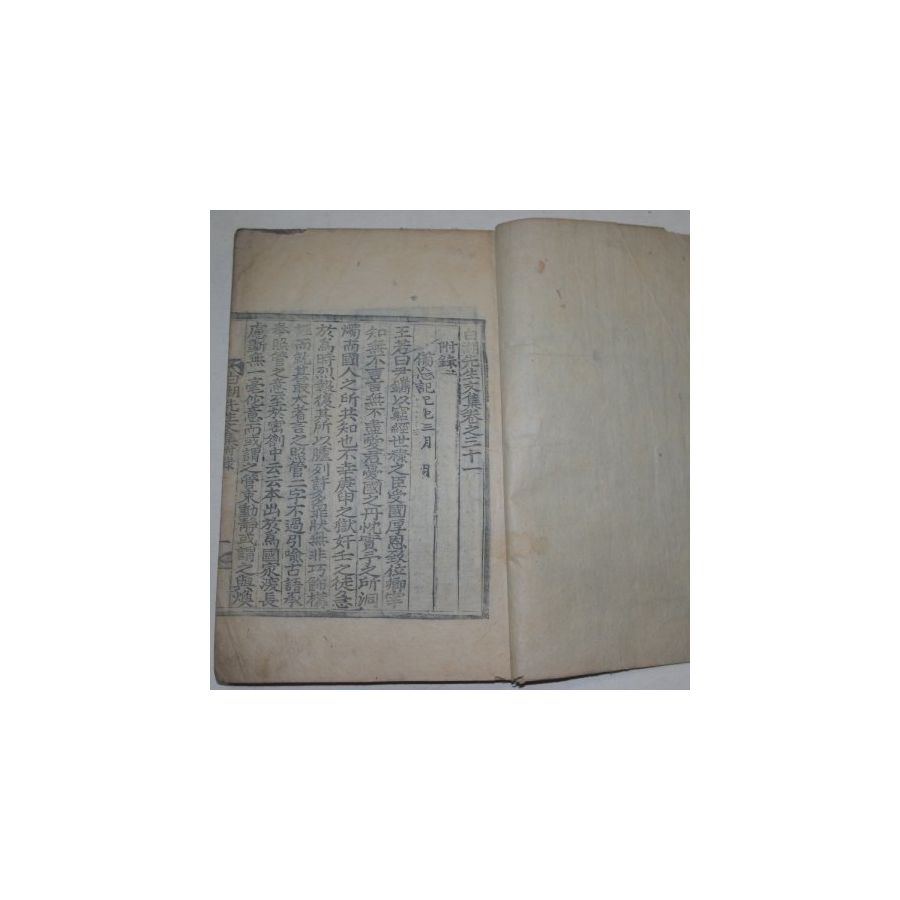 白湖先生文集卷之三十一
附錄二
備忘記己巳三月 日
王若曰尹鑴以窮經世祿之臣受國厚恩致位卿宰
知無不言言無不盡愛君憂國之丹忱實予之所洞
燭而國人之所共知也不幸庚申之獄奸壬之徒急
於爲時烈報復其所以臚列許多罪狀無非巧飾構
而就其最大者言之照管二字不過引喩古語承
奉照管之意至於密劄中云云本出於爲國家深長
慮斷無一毫他意而或謂之管束動靜或謂之與煥
白湖先生文集附錄
一